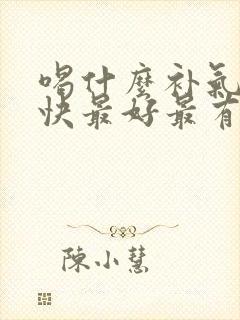 喝什麼补氣
快最好最有
陳小慧